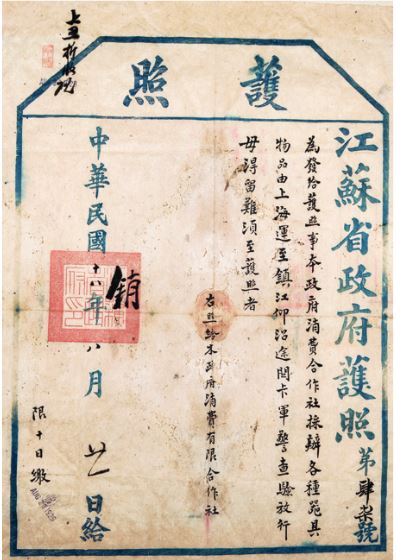 護照
江蘇省政府護照 第肆柒號
為發給護照事本政府消費合作社採辦各種器具
物品由上海運至鎮江仰沿途關卡軍警查驗放行
毋得留難須至護照者
右照給本政府消費有限合作社
中華民國十八年八月廿一日給
銷
限十日繳